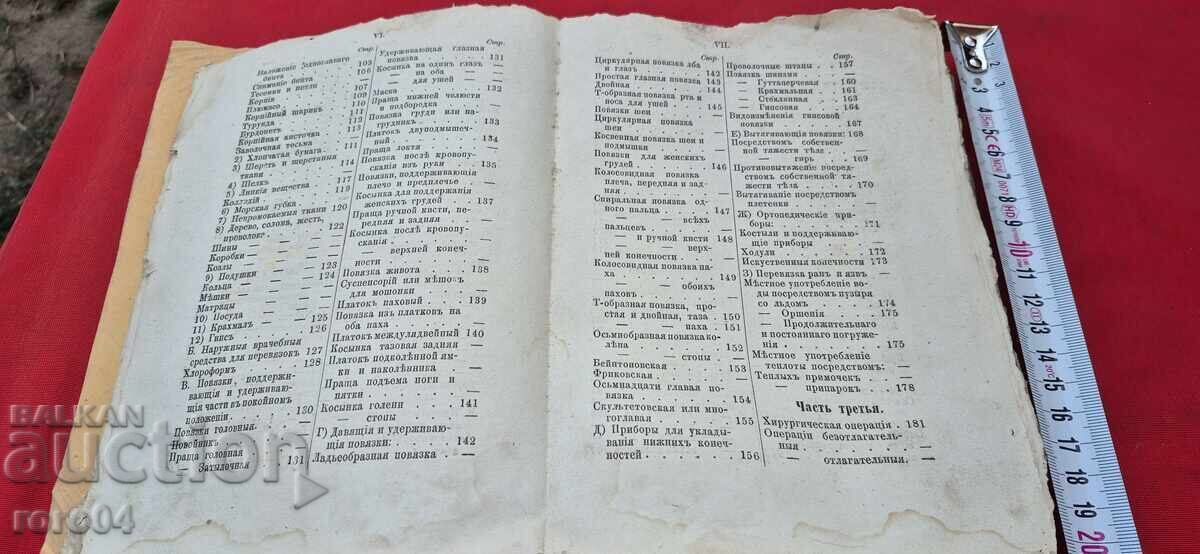 VI.
Стр.
Наложеніе однополаго
бинта . . . . 103
Сниманіе бинта . . 106
Тесемки и петли . . 107
Корпія . . . . 109
Плюмасо . . . . 110
Корпійный шарикъ . . 111
Турунда . . . . 112
Бурдонетъ . . . . 113
Корпійная кисточка . . —
Заволочная тесьма . . —
2) Хлопчатая бумага. . 111
3) Шерсть и шерстяныя
ткани . . . . 114
4) Шелкъ . . . . —
5) Липкія вещества . . 117
Коллэдій . . . . 119
6) Морская губка . . —
7) Непромокаемыя ткани 120
8) Дерево, солома, жесть,
проволоке . . . . 122
Шины . . . . —
Коробки . . . . —
Козлы . . . . 123
9) Подушки . . . 124
Кольца . . . . —
Мѣшки . . . . —
Матрацы . . . . —
10) Посуда . . . 125
11) Крахмалъ . . . 126
12) Гипсъ . . . . —
Б. Наружныя врачебныя
средства для перевязокъ 127
Хлороформъ . . . 128
В. Повязки, поддержи-
вающія и удерживаю-
щія части въ покойномъ
положеніи. . . . 130
Повязки головныя. . . —
Повойникъ . . . . —
Праща головная . . . —
— Затылочная . . 131
Стр.
Удерживающая глазная
повязка . . . . 131
Косынка на одинъ глазъ —
— на оба — —
— для ушей . . —
Маска . . . . 132
Праща нижней челюсти
и подбородка . . . —
Повязка груди или на-
грудникъ . . . . 133
Платокъ двуподмышеч-
ный. . . . . 134
Праща локтя . . . —
Повязка послѣ кровопу-
сканія изъ руки . . 135
Повязки, поддерживающія
плечо и предплечье . —
Косынка для поддержанія
женскихъ грудей . . 137
Праща ручной кисти, пе-
редняя и задняя . . —
Косынка послѣ кровопу-
сканія . . . . —
— верхней конеч-
ности . . . . —
Повязка живота . . 138
Суспенсорій или мѣшокъ
для мошонки . . . —
Платокъ паховый . . 139
Повязка изъ платковъ на
оба паха . . . . —
Платокъ междулядвейный 140
Косынка тазовая задняя —
Платокъ подколѣнной ям-
ки и наколѣнника . . —
Праща подъема ноги и
пятки . . . . —
Косынка голени . . 141
— стопы . . —
Г) Давящія и удерживаю-
щія повязки: . . . 142
Ладьеобразная повязка . —
VII.
Стр.
Циркулярная повязка лба
и глазъ . . . . 142
Простая глазная повязка 143
Двойная . . . . 144
Т-образная повязка рта и
носа для ушей . . . —
Повязки шеи . . . 145
Циркулярная повязка
шеи . . . . —
Косвенная повязка шеи и
подмышки . . . . —
Повязки для женскихъ
грудей . . . . 146
Колосовидная повязка
плеча, передняя и зад-
няя . . . . —
Спиральная повязка од-
ного пальца . . . 147
— всѣхъ
пальцевъ . . . —
— и ручной кисти 148
— верх-
ней конечности . . —
Колосовидная повязка па-
ха . . . . 149
— обоихъ
паховъ . . . . —
Т-образная повязка, про-
стая и двойная, таза . 150
— паха . . 151
Осьмиобразная повязка ко-
лѣна . . . . 152
— стопы . . —
Бейнтоновская . . . 153
Фриковская . . . —
Осьмнадцати главая по-
вязка . . . . 154
Скультетовская или мно-
гоглавая . . . . 155
Д) Приборы для уклады-
ванія нижнихъ конеч-
ностей . . . . 156
Стр.
Проволочные штаны . . 157
Повязка шинами . . . —
— Гуттаперчевая . . 160
— Крахмальная . . 161
— Стеклянная . . 163
— Гипсовая . . 164
Видоизмѣненія гипсовой
повязки . . . . 167
Е) Вытягивающія повязки: 168
Посредствомъ собствен-
ной тяжести тѣла . —
— гирь . . 169
Противовытяженіе посред-
ствомъ собственной тя-
жести тѣла . . . 170
Вытягиваніе посредствомъ
плетенки . . . . —
Ж) Ортопедическіе при-
боры: . . . . 171
Костыли и поддерживаю-
щіе приборы . . . —
Ходули . . . . 172
Искуственныя конечности 173
З) Перевязка ранъ и язвъ . —
Мѣстное употребленіе во-
ды посредствомъ пузыря
со льдомъ . . . 174
— Орошенія . . 175
— Продолжительнаго
и постояннаго погруже-
нія . . . . 175
Мѣстное употребленіе
теплоты посредствомъ: —
Теплыхъ примочекъ . . —
— припарокъ . . 178
Часть третья.
Хирургическая операція . 181
Операціи безотлагатель-
ныя . . . . —
— отлагательныя. —
BALKAN
auction
roro04